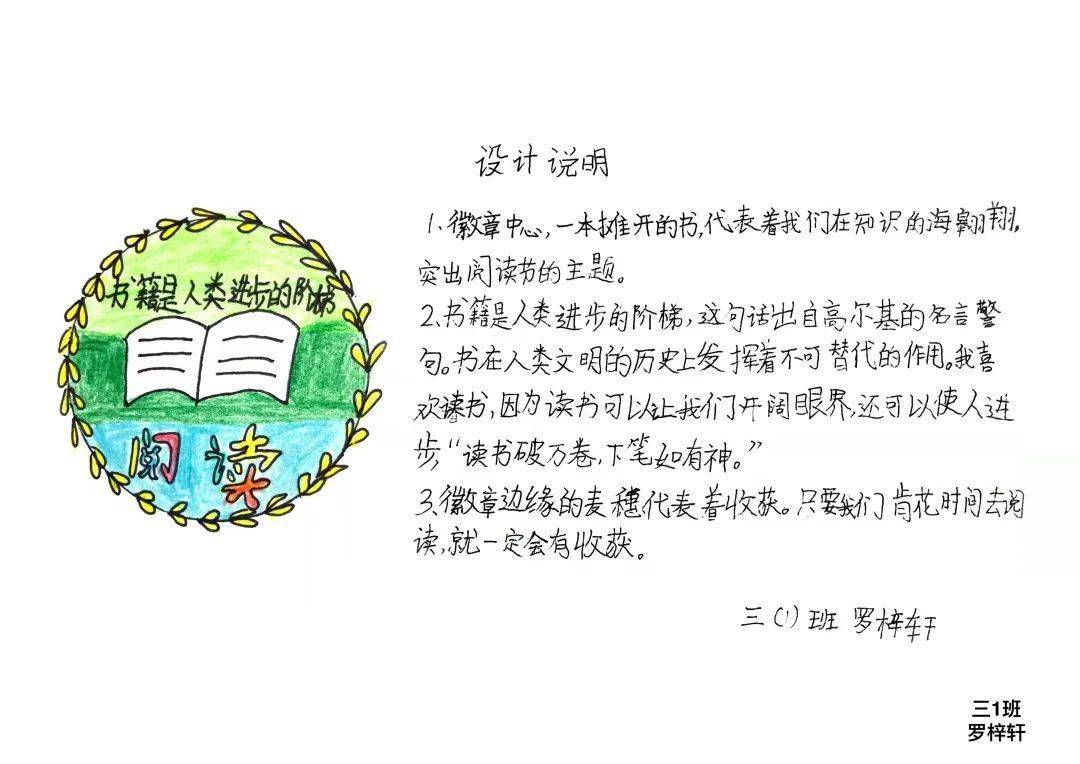 书籍是人类进步的阶梯
阅读
设计说明
1、徽章中心,一本摊开的书,代表着我们在知识的海翱翔,
突出阅读节的主题。
2、书籍是人类进步的阶梯,这句话出自高尔基的名言警
句。书在人类文明的历史上发挥着不可替代的作用。我喜
欢读书,因为读书可以让我们开阔眼界,还可以使人进
步“读书破万卷,下笔如有神。”
3、徽章边缘的麦穗代表着收获。只要我们肯花时间去阅
读,就一定会有收获。
三(1)班 罗梓轩
三1班
罗梓轩